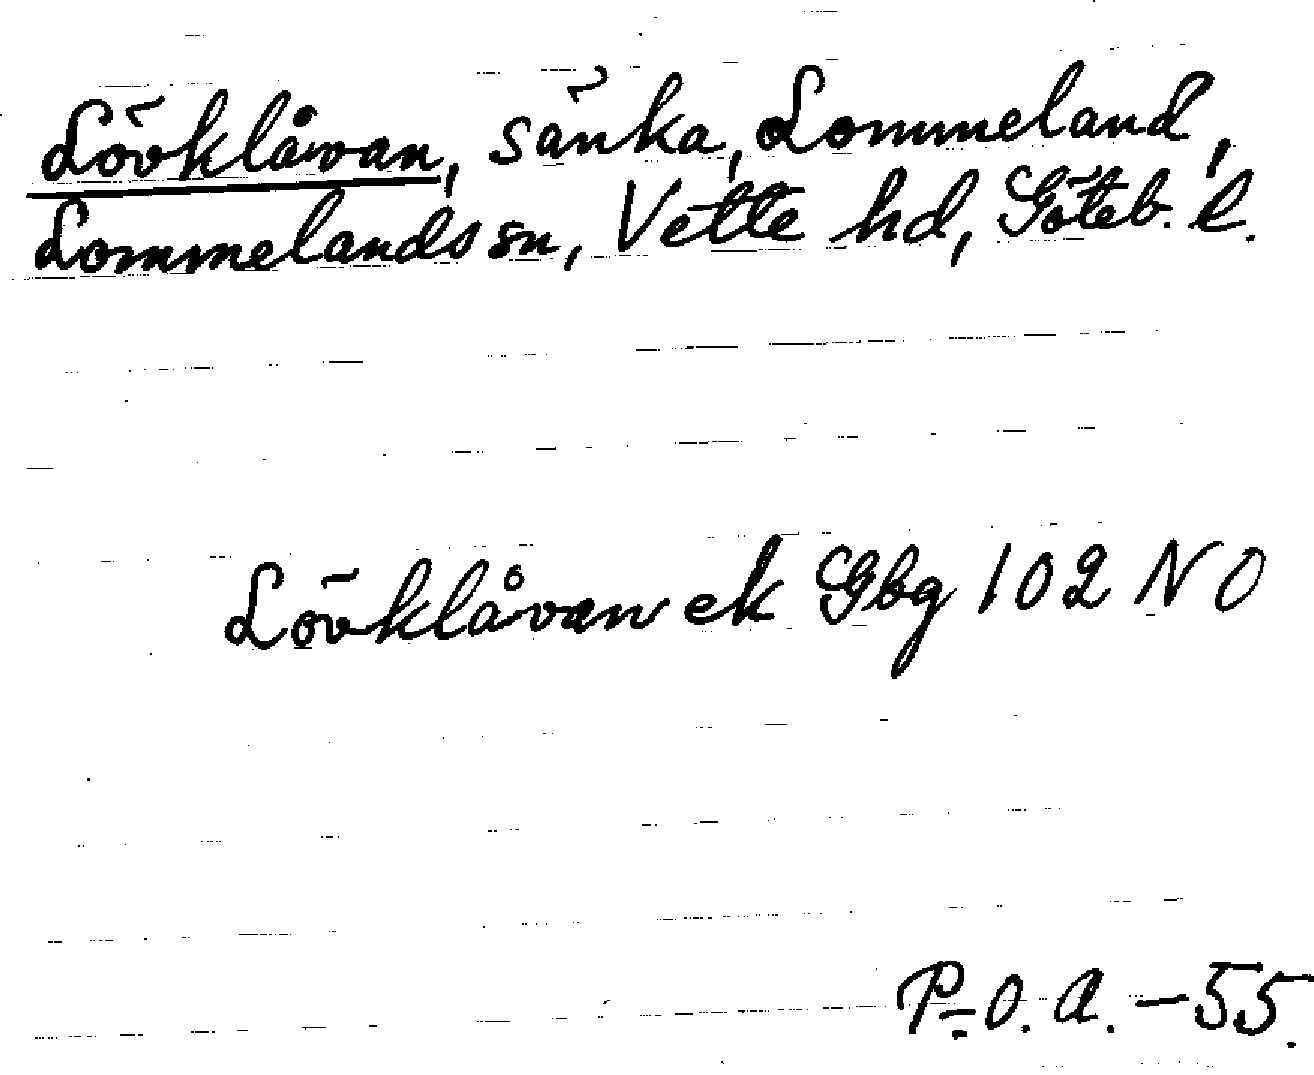 Lövklåvan, sänka, Lommeland,
Lommelands sn, Vette hd, Göteb. l.
Lövklåvan ek Gbg 102 NO
P.O.A. -55.